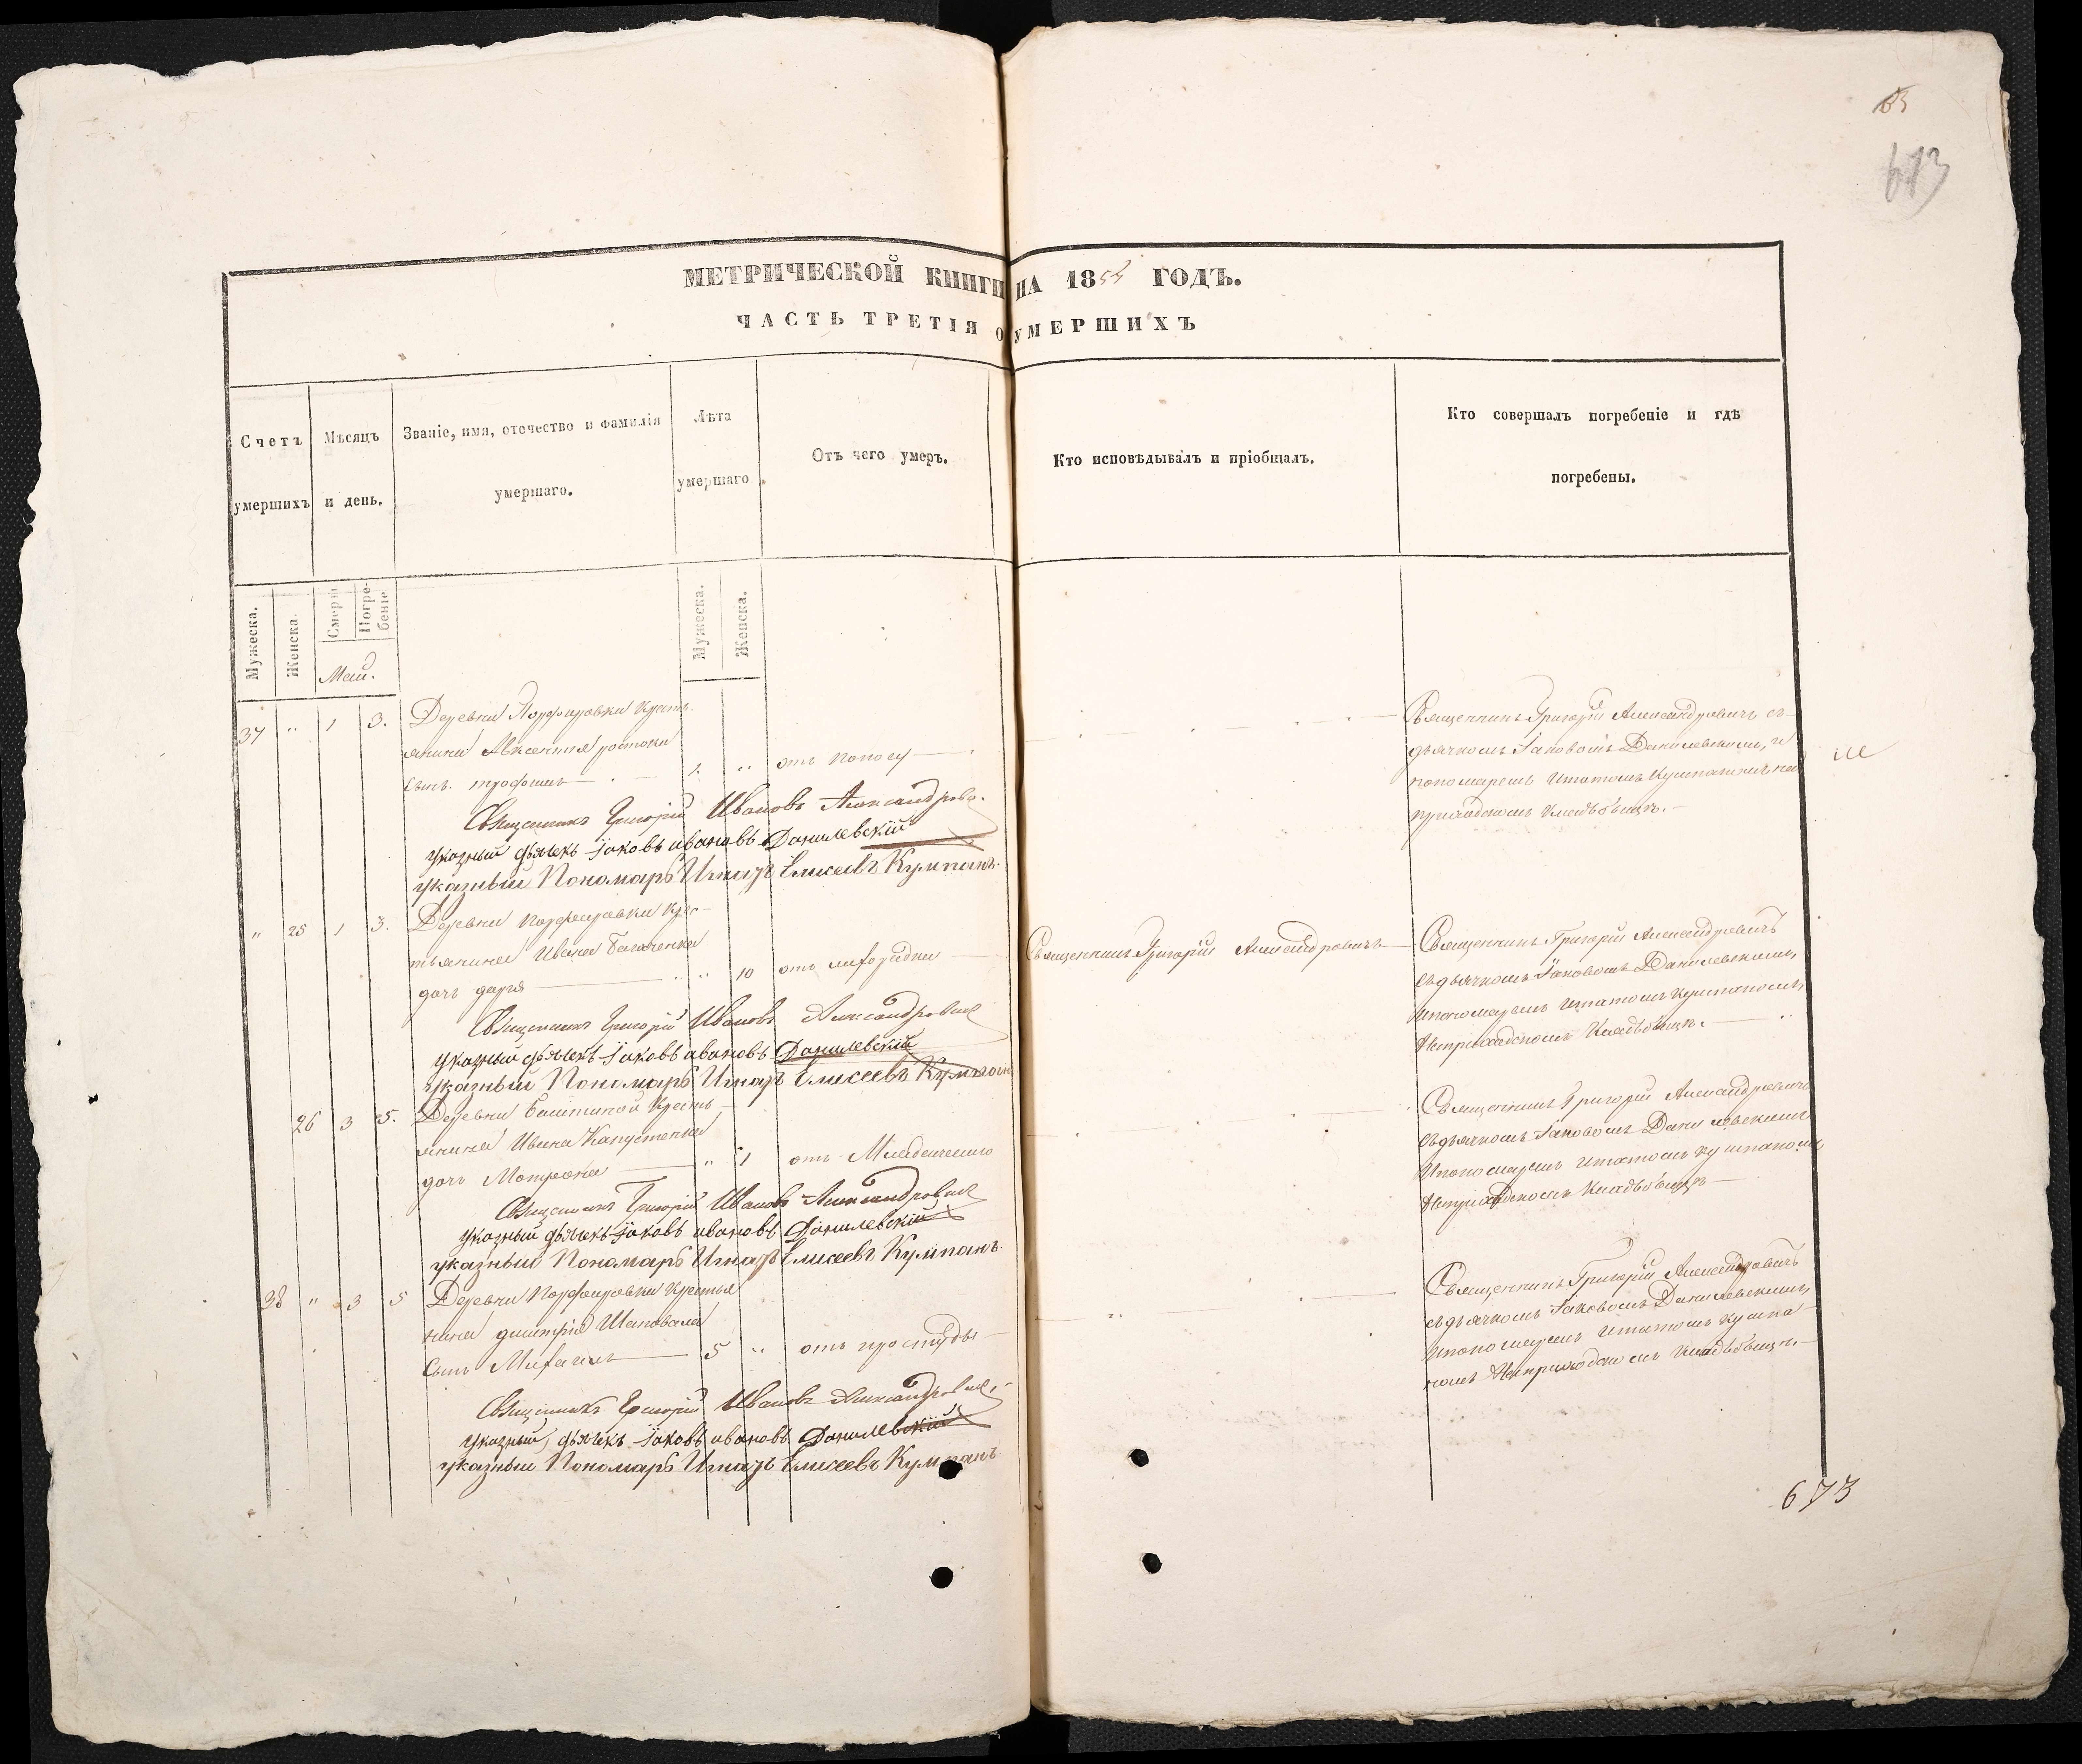 63
673
МЕТРИЧЕСКОЙ КНИГИ НА 1854 ГОДЪ.
ЧАСТЬ ТРЕТІЯ О УМЕРШИХЪ
Счетъ умершихъ
Мѣсяцъ и день.
Званіе, имя, отечество и фамилія умершаго.
Лѣта умершаго
Отъ чего умеръ.
Кто исповѣдывалъ и пріобщалъ.
Кто совершалъ погребеніе и гдѣ погребены.
Мужеска.
Женска.
Смерти
Погребеніе
Маій.
Мужеска.
Женска.
37 " 1 3. Деревни Порфировки Крест-
янина Авксентия
сынъ трофимъ 1. " отъ поносу
Священникъ Григорій Александровичъ съ
дьячкомъ Іаковомъ Данилевскимъ, и
пономаремъ Игнатомъ Кумпаномъ на
приходскомъ кладьбищѣ.
Священникъ Григорій Ивановъ Александрович
указный дьячекъ Іаковъ ивановъ Данилевскій
указный Пономарь Игнатъ Елисеевъ Кумпанъ.
" 25 1 3. Деревни Порфировки Крес-
тьянина Ивана
дочь дарія " 10 отъ лихорадки
Священникъ Григорій Александровичъ
Священникъ Григорій Александровичъ
съ дьячкомъ Іаковомъ Данилевскимъ,
ипономаремъ Игнатомъ Кумпаномъ,
на приходскомъ кладьбищѣ.
Священникъ Григорій Ивановъ Александрович
указный дьячекъ Іаковъ ивановъ Данилевскій
указный Пономарь Игнатъ Елисеевъ Кумпан
26 3 5. Деревни Крестья-
янина Ивана Капустенка
дочь Мотрона " 1 отъ Младенческаго
Священникъ Григорій Александровичъ
съ дьячкомъ Іаковомъ Данилевскимъ
ипономаремъ Игнатомъ кумпаномъ
на приходскомъ кладьбищѣ
Священникъ Григорій Ивановъ Александрович
указный дьячекъ Іаковъ ивановъ Данилевскій
указный Пономарь Игнатъ Елисеевъ Кумпанъ.
38 " 3 5 Деревни Порфировки крестья
нина дмитрія Шаповала
сынъ Михаилъ 5 " отъ простуды
Священникъ Григорій Александровичъ
съ дьячкомъ Іаковомъ Данилевскимъ
ипономаремъ Игнатомъ кумпа-
номъ на приходскомъ кладьбищѣ.
Священникъ Григорій Ивановъ Александрович
указный дьячекъ Іаковъ ивановъ Данилевскій
указный Пономарь Игнатъ Елисеевъ Кумпанъ
673